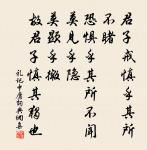 君子戒慎乎其所
不睹
恐惧乎其所不闻
莫見乎隐
莫顯乎微
故君子慎其獨也
礼記中庸